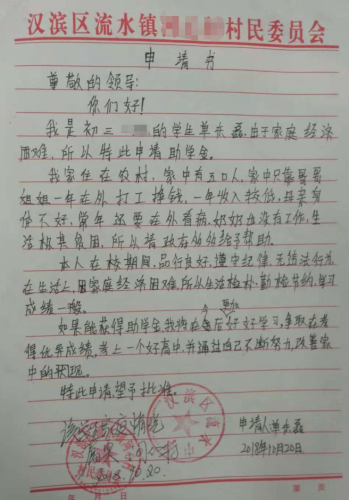 汉滨区流水镇 村民委员会
申请书
尊敬的领导:
你们好!
我是初三 的学生单长磊,由于家庭经济
困难,所以特此申请助学金。
我家住在农村,家中有五口人,家中只靠哥哥
姐姐一年在外打工挣钱,一年收入较低,母亲身
份不好,常年还要在外看病,奶奶也没有工作,生
活极其贫困,所以希政府能给予帮助。
本人在校期间,品行良好,遵守纪律,无违法行为
在生活上,因家庭经济困难,所以生活检朴勤检节约,学习
成绩一般。
如果能获得助学金,我将在今后更加好好学习,争取在考
得优异成绩,考上一个好高中,并通过自己不断努力,改善家
中的状现。
特此申请望予批准。
申请人:单长磊
2018年10月20日
汉滨区流水
村民委员会
年 月 日
第 页